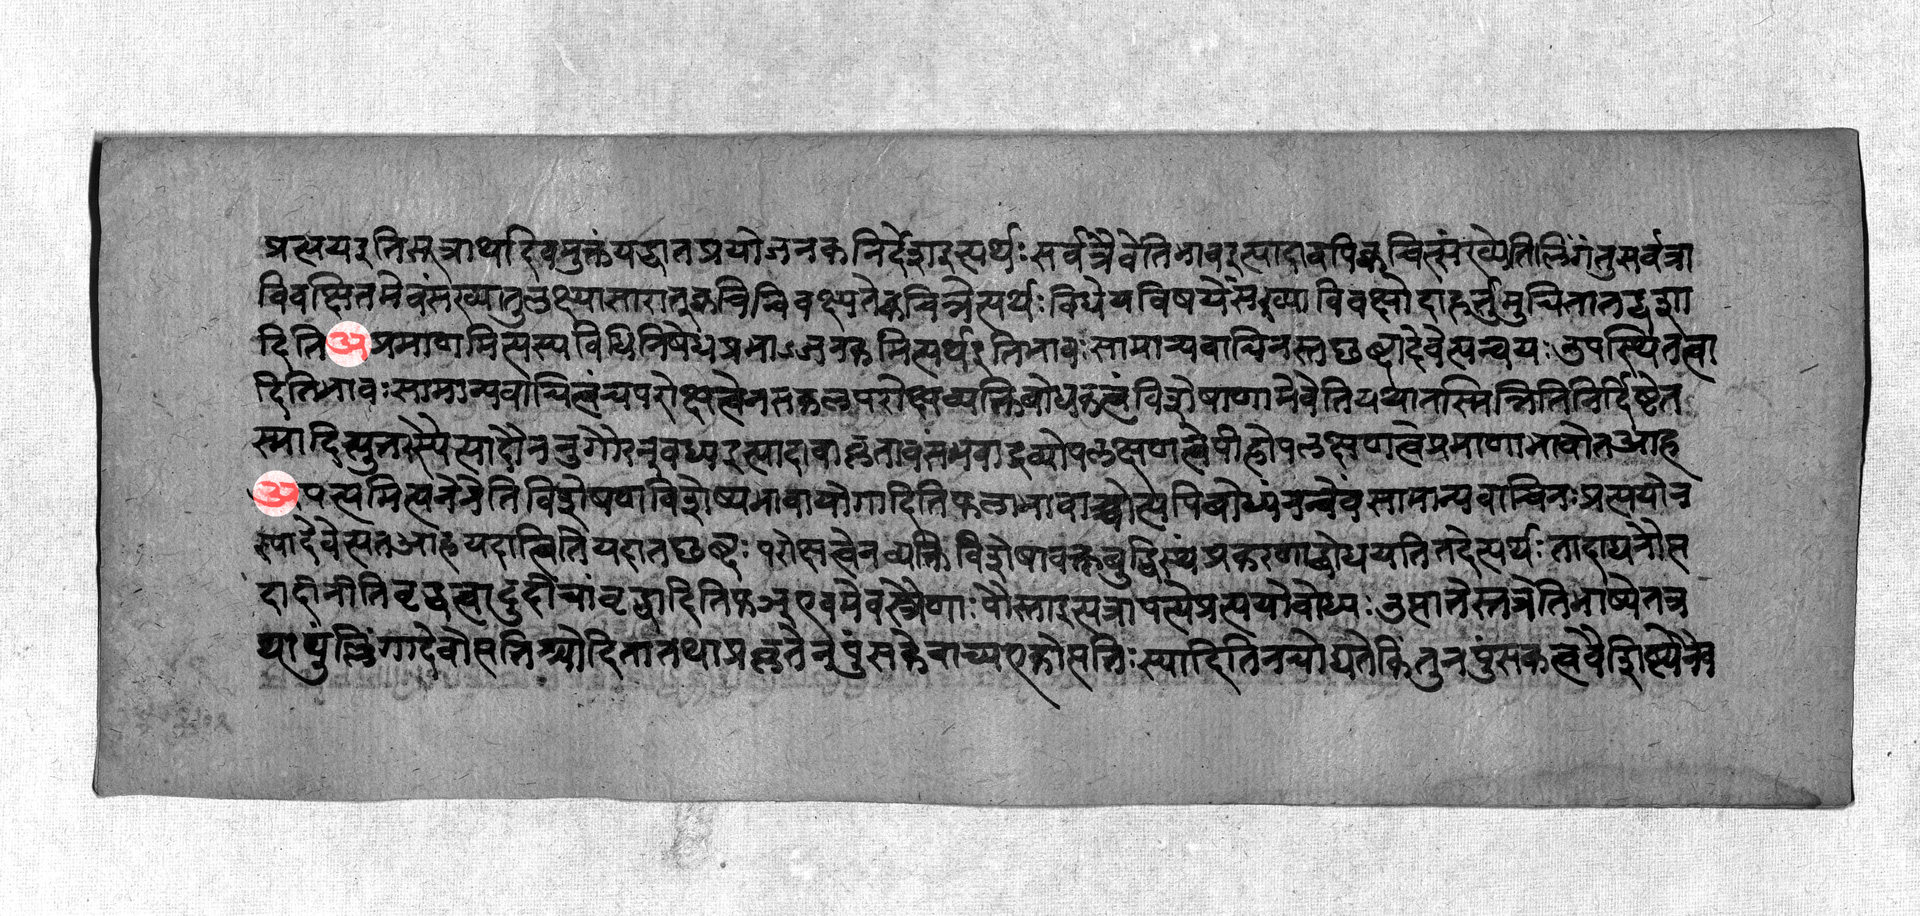 प्रत्यय इति सूत्राथदिवमुक्तं यद्धात प्रयोजनकनिर्देश इत्यर्थः सर्वत्रैवेति भाव इत्यादावपि क्वचित्संख्येति लिंगं तु सर्वत्रा
विवक्षितमेव संख्या तु लक्ष्यानुसारात् क्वचिद्विवक्ष्यते क्वचिन्नेत्यर्थः विधेयविषये संख्याविवक्षो दाह
दिति अप्रमाणमित्यस्य विधिनिषेध प्रमाऽजनकमित्यर्थ इति भावः सामान्यवाचिनस्तछब्दादेवेत्यन्वयः उपस्थितत्वा
दिति भावः सामान्यवाचित्वंच्यपरोक्षत्वेन सकलपरोक्षव्यक्तिबोधकत्वं विशेषाणामेवेति यथा तस्मिन्निति निर्दिष्टे त
स्मादित्युत्तरस्येत्यादौ ननु गोरनुबध्य इत्यादावाकृतावसंभवाद्द्रव्योपलक्षणत्वेपीहोपलक्षणत्वे प्रमाणाभावोत आह
अपत्यमित्यनेनेति विशेषणविशेष्यभावायोगादिति फलाभावाच्चेत्यपि बोध्यं नन्वेवं सामान्यवाचिनः प्रत्ययो न
स्यादेवेत्यत आह यदात्विति यदा तछब्दः परोक्षत्वेन व्यक्तिं विशेषावक्तबुद्धिस्थं प्रकरणाद्बोधयति तदेत्यर्थः तादाय नौस
दादीनीति वृद्धत्वादुदीचां वृद्धादिति फिञ् एवमेव स्त्रैणाः पौंस्ना इत्यत्रापत्ये प्रत्ययो बोध्यः उसानेस्तत्रेति भाष्ये तत्र
यापुल्लिंगादेवोसत्तिश्चोदिता तथा प्रकृते नपुंसके वाच्य एकोसत्तिः स्यादिति न चोद्यते किंतु नपुंसकत्ववैशिष्ट्येनैव